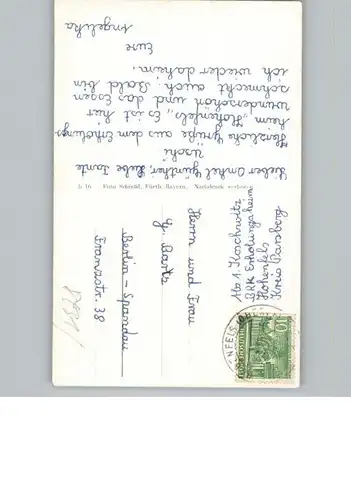 Lieber Onkel Günther, liebe Tante
Uschi
Herzliche Grüße aus dem Erholungs-
heim "Hohenfels„ Es ist hier
wunderschön und das Essen
schmeckt auch. Bald bin
ich wieder daheim.
Eure
Angelika
h 16 Foto Schöndl, Fürth, Bayern. Nachdruck verboten
Abs. A. Koschwitz
BRK Erholungsheim
Hohenfels
Kreis Parsberg
Herrn und Frau
G. Bartz
Berlin – Spandau
Franzstr. 38
NFELS
10